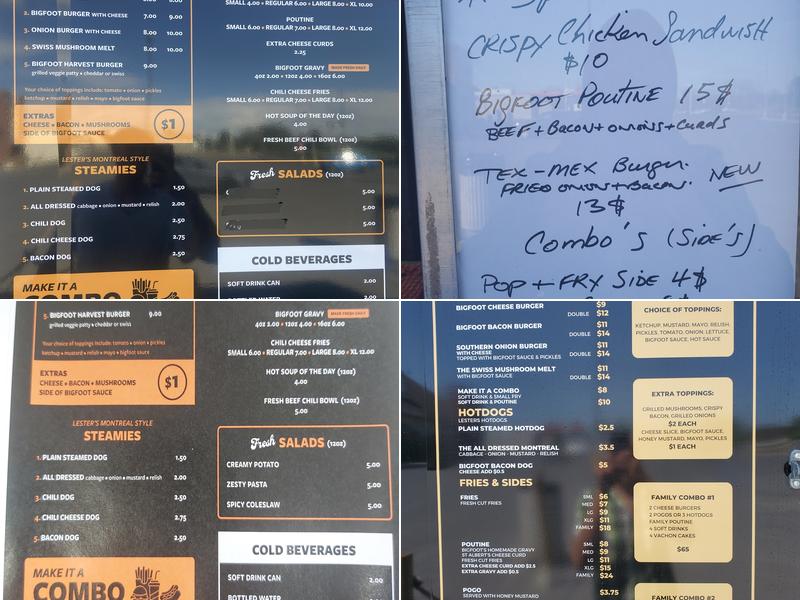 2. BIGFOOT BURGER WITH CHEESE 7.00 9.00
3. ONION BURGER WITH CHEESE 8.00 10.00
4. SWISS MUSHROOM MELT 8.00 10.00
5. BIGFOOT HARVEST BURGER 9.00
grilled veggie patty • cheddar or swiss
Your choice of toppings include: tomato • onion • pickles
ketchup • mustard • relish • mayo • bigfoot sauce
EXTRAS
CHEESE • BACON • MUSHROOMS
SIDE OF BIGFOOT SAUCE
$1
LESTER'S MONTREAL STYLE
STEAMIES
1. PLAIN STEAMED DOG 1.50
2. ALL DRESSED cabbage • onion • mustard • relish 2.00
3. CHILI DOG 2.50
4. CHILI CHEESE DOG 2.75
5. BACON DOG 2.50
MAKE IT A
COMBO
SMALL 4.00 • REGULAR 6.00 • LARGE 8.00 • XL 10.00
POUTINE
SMALL 6.00 • REGULAR 7.00 • LARGE 8.00 • XL 12.00
EXTRA CHEESE CURDS
2.25
BIGFOOT GRAVY MADE FRESH DAILY
4OZ 2.00 • 12OZ 4.00 • 16OZ 6.00
CHILI CHEESE FRIES
SMALL 6.00 • REGULAR 7.00 • LARGE 8.00 • XL 12.00
HOT SOUP OF THE DAY (12OZ)
4.00
FRESH BEEF CHILI BOWL (12OZ)
5.00
Fresh SALADS (12OZ)
5.00
5.00
5.00
COLD BEVERAGES
SOFT DRINK CAN 2.00
BOTTLED WATER
CRISPY Chicken Sandwish
$10
BIGFOOT POUTINE 15$
BEEF + BACON + ONIONS + CURDS
TEX-MEX Burger.
FRIED ONION + BACON. NEW
13$
Combo's (Side's)
POP + FRY SIDE 4$
5. BIGFOOT HARVEST BURGER 9.00
grilled veggie patty • cheddar or swiss
Your choice of toppings include: tomato • onion • pickles
ketchup • mustard • relish • mayo • bigfoot sauce
EXTRAS
CHEESE • BACON • MUSHROOMS
SIDE OF BIGFOOT SAUCE
$1
LESTER'S MONTREAL STYLE
STEAMIES
1. PLAIN STEAMED DOG 1.50
2. ALL DRESSED cabbage • onion • mustard • relish 2.00
3. CHILI DOG 2.50
4. CHILI CHEESE DOG 2.75
5. BACON DOG 2.50
MAKE IT A
COMBO
BIGFOOT GRAVY MADE FRESH DAILY
4OZ 2.00 • 12OZ 4.00 • 16OZ 6.00
CHILI CHEESE FRIES
SMALL 6.00 • REGULAR 7.00 • LARGE 8.00 • XL 12.00
HOT SOUP OF THE DAY (12OZ)
4.00
FRESH BEEF CHILI BOWL (12OZ)
5.00
Fresh SALADS (12OZ)
CREAMY POTATO 5.00
ZESTY PASTA 5.00
SPICY COLESLAW 5.00
COLD BEVERAGES
SOFT DRINK CAN 2.00
BOTTLED WATER
BIGFOOT CHEESE BURGER $9
DOUBLE $12
BIGFOOT BACON BURGER $11
DOUBLE $14
SOUTHERN ONION BURGER $11
WITH CHEESE DOUBLE $14
TOPPED WITH BIGFOOT SAUCE & PICKLES
THE SWISS MUSHROOM MELT $11
WITH BIGFOOT SAUCE DOUBLE $14
MAKE IT A COMBO $8
SOFT DRINK & SMALL FRY
SOFT DRINK & POUTINE $10
HOTDOGS
LESTERS HOTDOGS
PLAIN STEAMED HOTDOG $2.5
THE ALL DRESSED MONTREAL $3.5
CABBAGE • ONION • MUSTARD • RELISH
BIGFOOT BACON DOG $5
CHEESE ADD $0.5
FRIES & SIDES
FRIES SML $6
FRESH CUT FRIES MED $7
LG $9
XLG $11
FAMILY $18
POUTINE SML $8
BIGFOOT'S HOMEMADE GRAVY MED $9
ST ALBERT'S CHEESE CURD LG $11
FRESH CUT FRIES
EXTRA CHEESE CURD ADD $2.5 XLG $15
EXTRA GRAVY ADD $0.5 FAMILY $24
POGO $3.75
SERVED WITH HONEY MUSTARD
CHOICE OF TOPPINGS:
KETCHUP, MUSTARD, MAYO, RELISH,
PICKLES, TOMATO, ONION, LETTUCE,
BIGFOOT SAUCE, HOT SAUCE
EXTRA TOPPINGS:
GRILLED MUSHROOMS, CRISPY
BACON, GRILLED ONIONS
$2 EACH
CHEESE SLICE, BIGFOOT SAUCE,
HONEY MUSTARD, MAYO, PICKLES
$1 EACH
FAMILY COMBO #1
2 CHEESE BURGERS
2 POGOS OR 3 HOTDOGS
FAMILY POUTINE
4 SOFT DRINKS
4 VACHON CAKES
$65
FAMILY COMBO #2